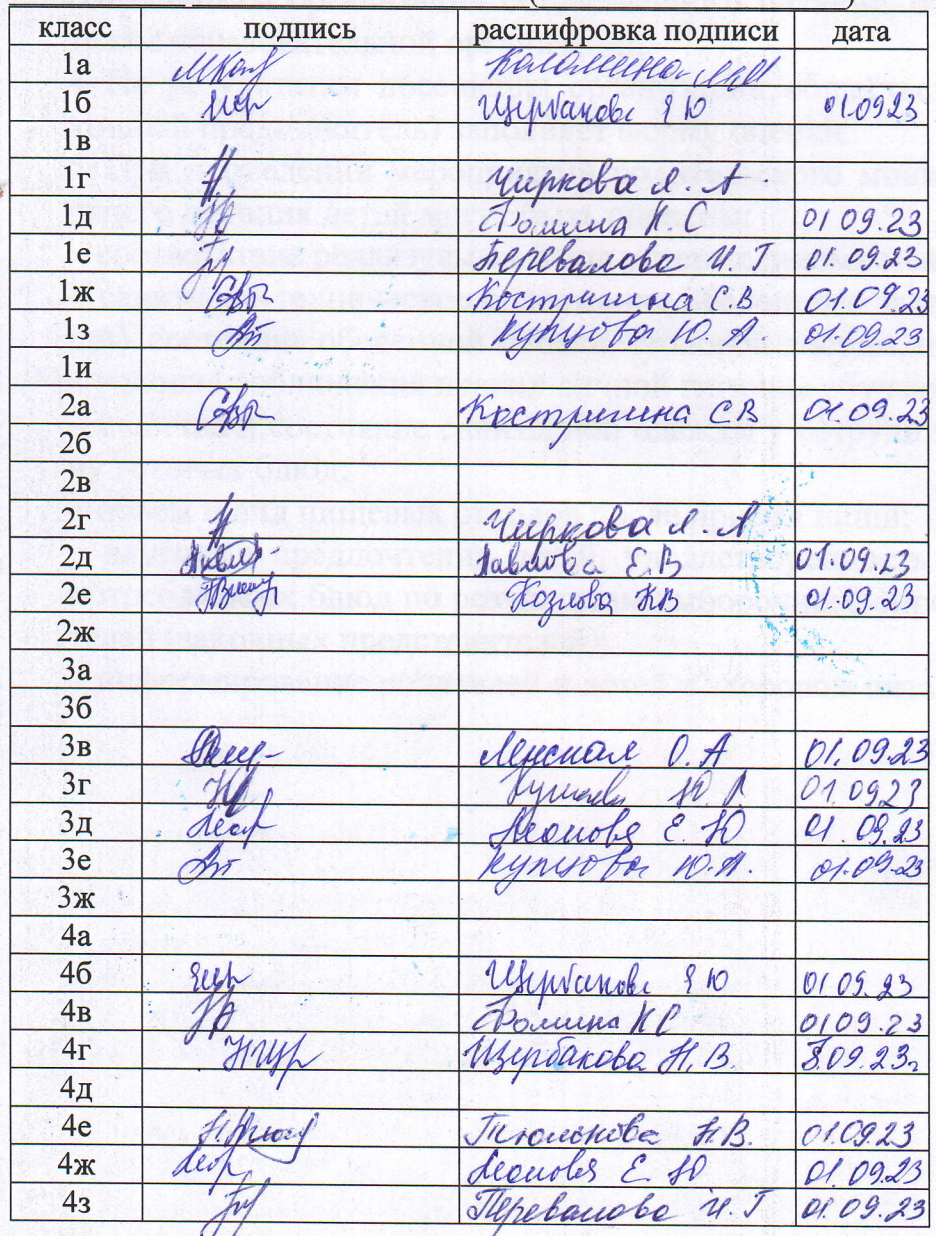 класс подпись расшифровка подписи дата
1а Коломина М М
1б Щербакова Я Ю 01.09.23
1в
1г Чиркова Л. А
1д Фомина К. С 01 09.23
1е Перевалова И. Г 01.09.23
1ж Костригина С. В 01.09.23
1з Купцова Ю. А 01.09.23
1и
2а Костригина С В 01.09.23
2б
2в
2г Чиркова Л. А
2д Павлова Е. В 01.09.23
2е Козлова Н В 01.09.23
2ж
3а
3б
3в Ленская О. А 01.09.23
3г Ю. 01.0923
3д Леонова Е. Ю 01.09.23
3е Купцова Ю. А. 01.09.23
3ж
4а
4б Щербакова Я Ю 01.09.23
4в Фомина К С 0109.23
4г Щербакова Н. В. 09.23г
4д
4е Тюлькова Н. В. 01.09.23
4ж Леонова Е. Ю 01.09.23
4з Перевалова И. Г 01.09.23